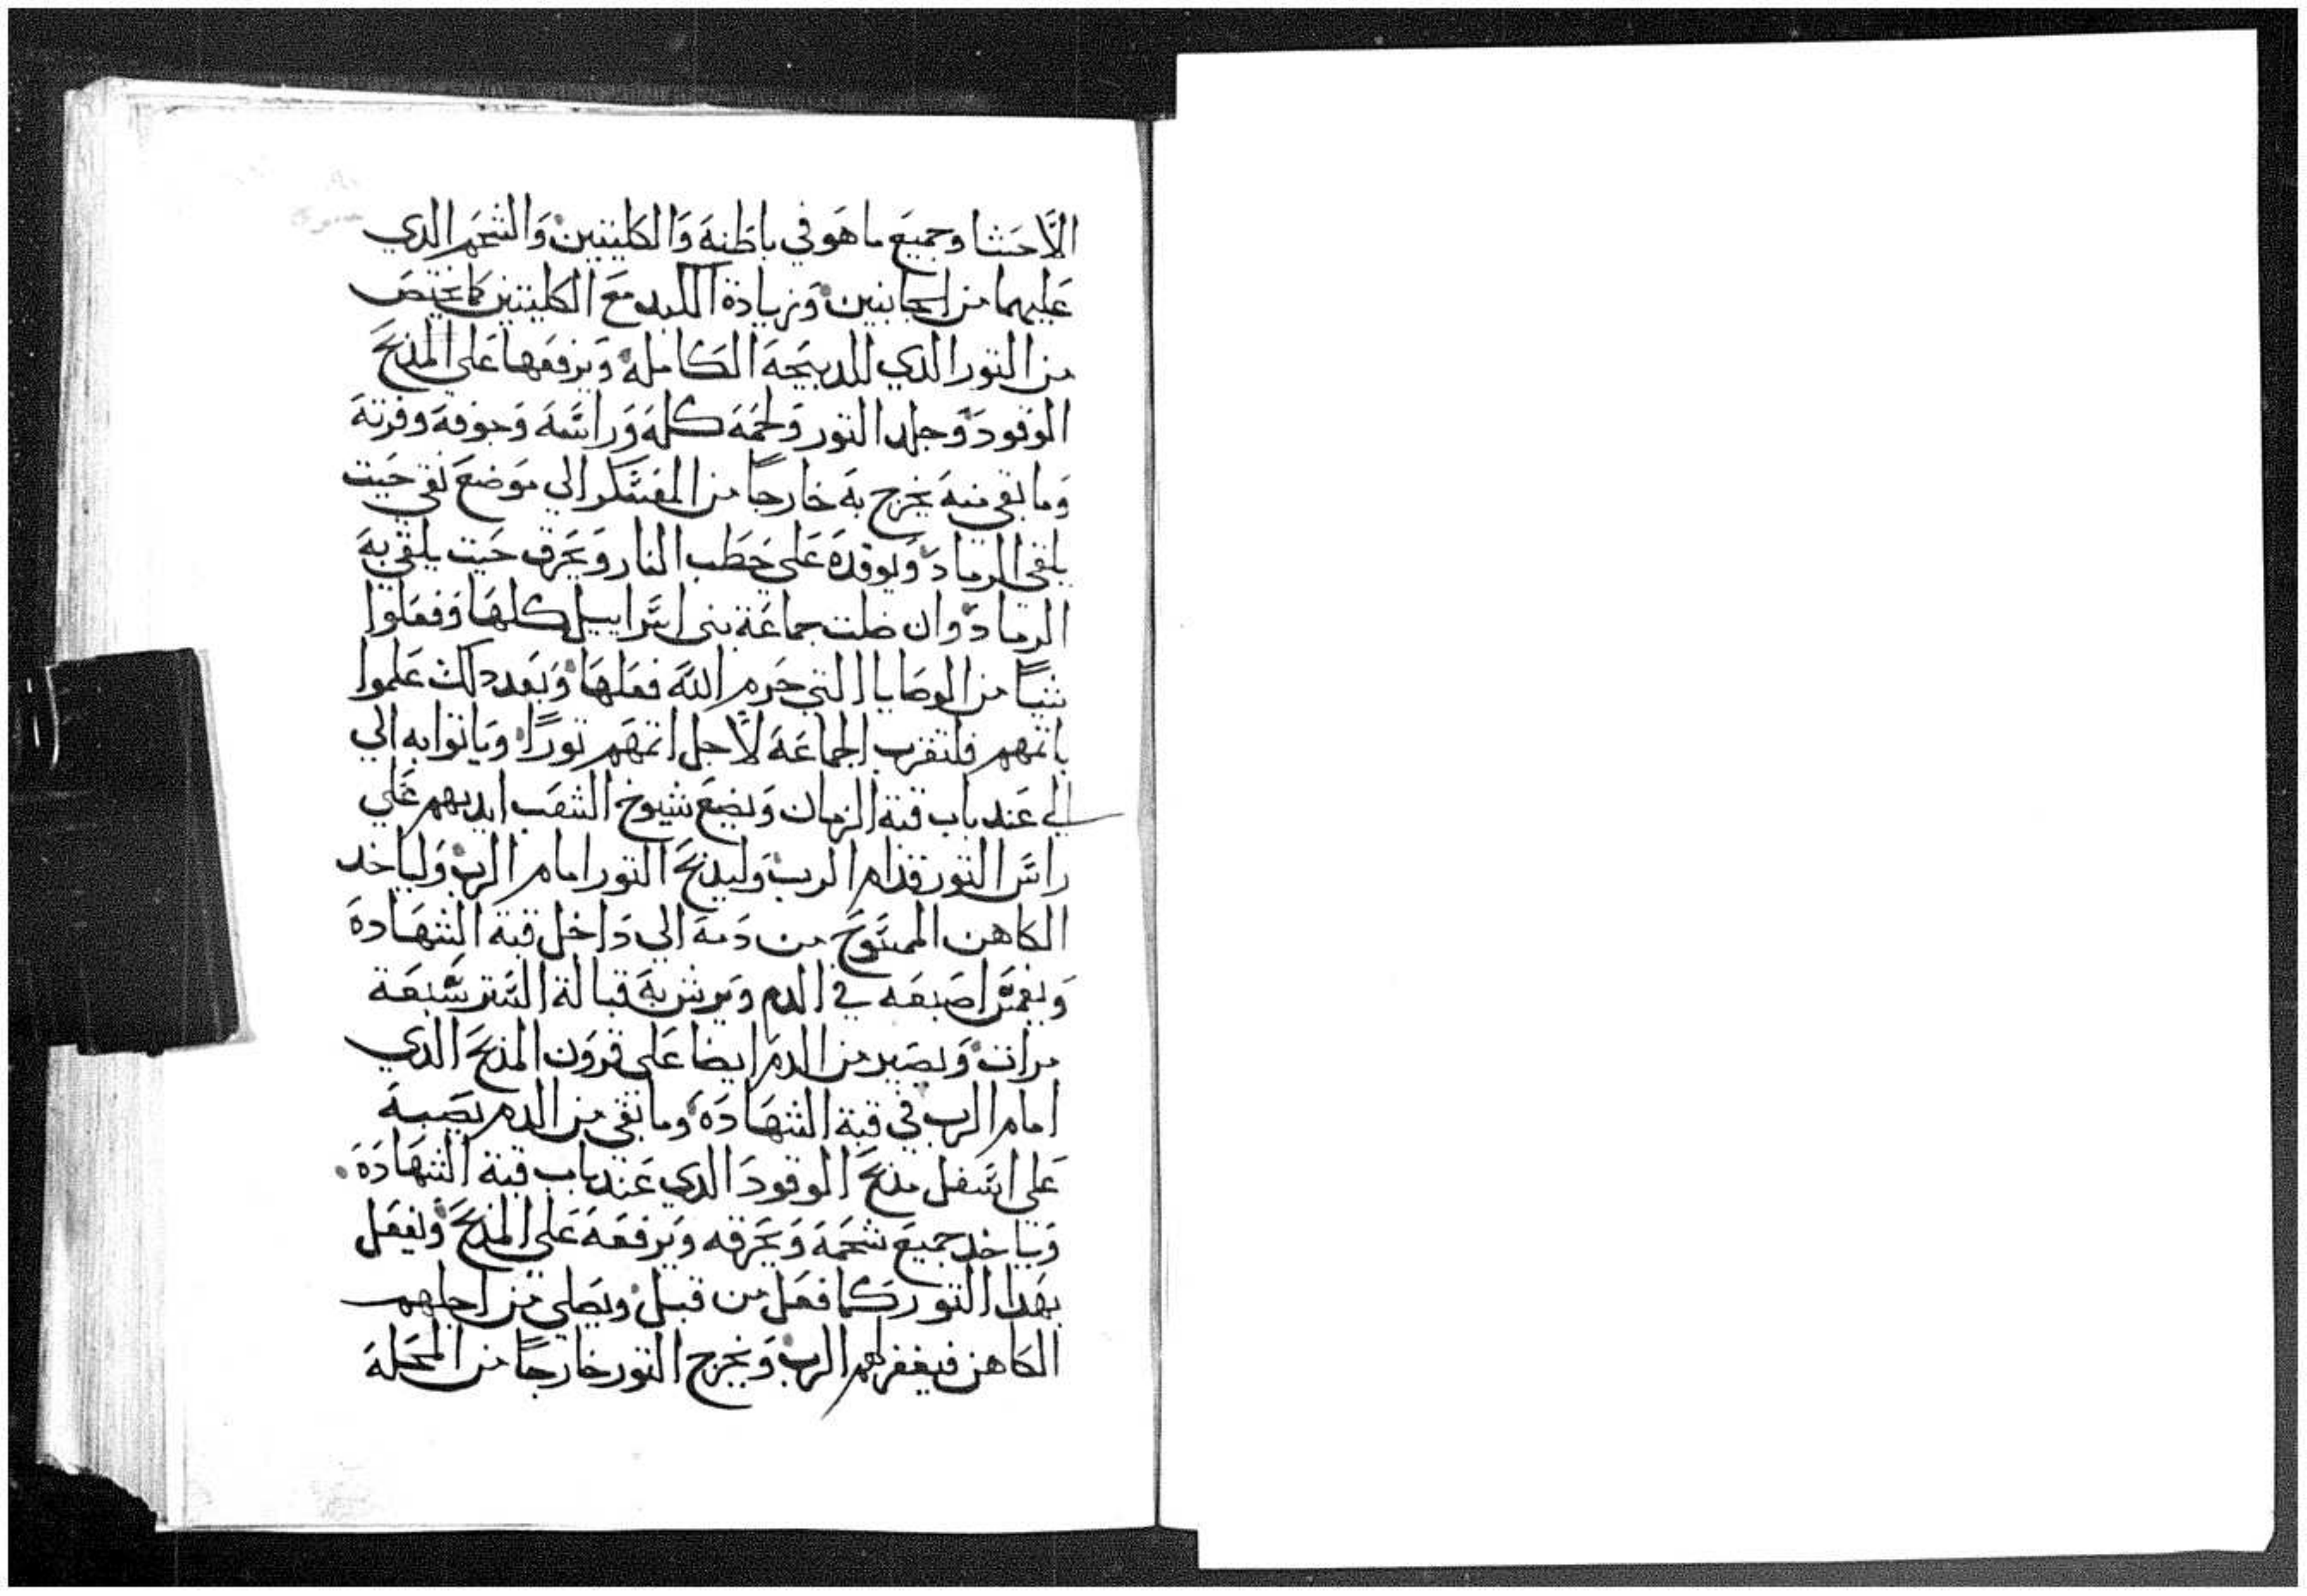 الاحشا وجميع ما هو في باطنه والكليتين والشحم الدي
عليهما من الجانبين وزيادة الكبد مع الكليتين كما يختص
من التور الدي للدبيحة الكاملة ويرفعها على المذبح
الوقود وجلد التور ولحمه كله وراسه وجوفه وفرته
وما بقي منه يخرج به خارجاً من المعسكر الي موضع نقي حيت
يلقي الرماد ويوقده علي حطب النار ويحرق حيت يلقي به
الرماد وان ضلت جماعة بني اسراييل كلها وفعلوا
شياً من الوصايا التي حرم الله فعلها وبعد دلك علموا
باتمهم فلتقرب الجماعة لاجل اتمهم توراً وياتوا به الي
الي عند باب قبة الزمان ويضع شيوخ الشعب ايديهم علي
راس التور قدام الرب وليذبح التور امام الرب ولياخد
الكاهن الممسوح من دمه الي داخل قبة الشهادة
ويغمس اصبعه في الدم ويرش به قبالة الستر سبعة
مرات ويصير من الدم ايضا علي قرون المذبح الدي
امام الرب في قبة الشهادة وما بقي من الدم يصبه
علي اسفل مذبح الوقود الدي عند باب قبة الشهادة
وياخد جميع شحمه ويحرقه ويرفعه علي المذبح ويفعل
بهدا التور كما فعل من قبل ويصلي من اجلهم
الكاهن فيغفر لهم الرب ويخرج التور خارجاً من المحلة